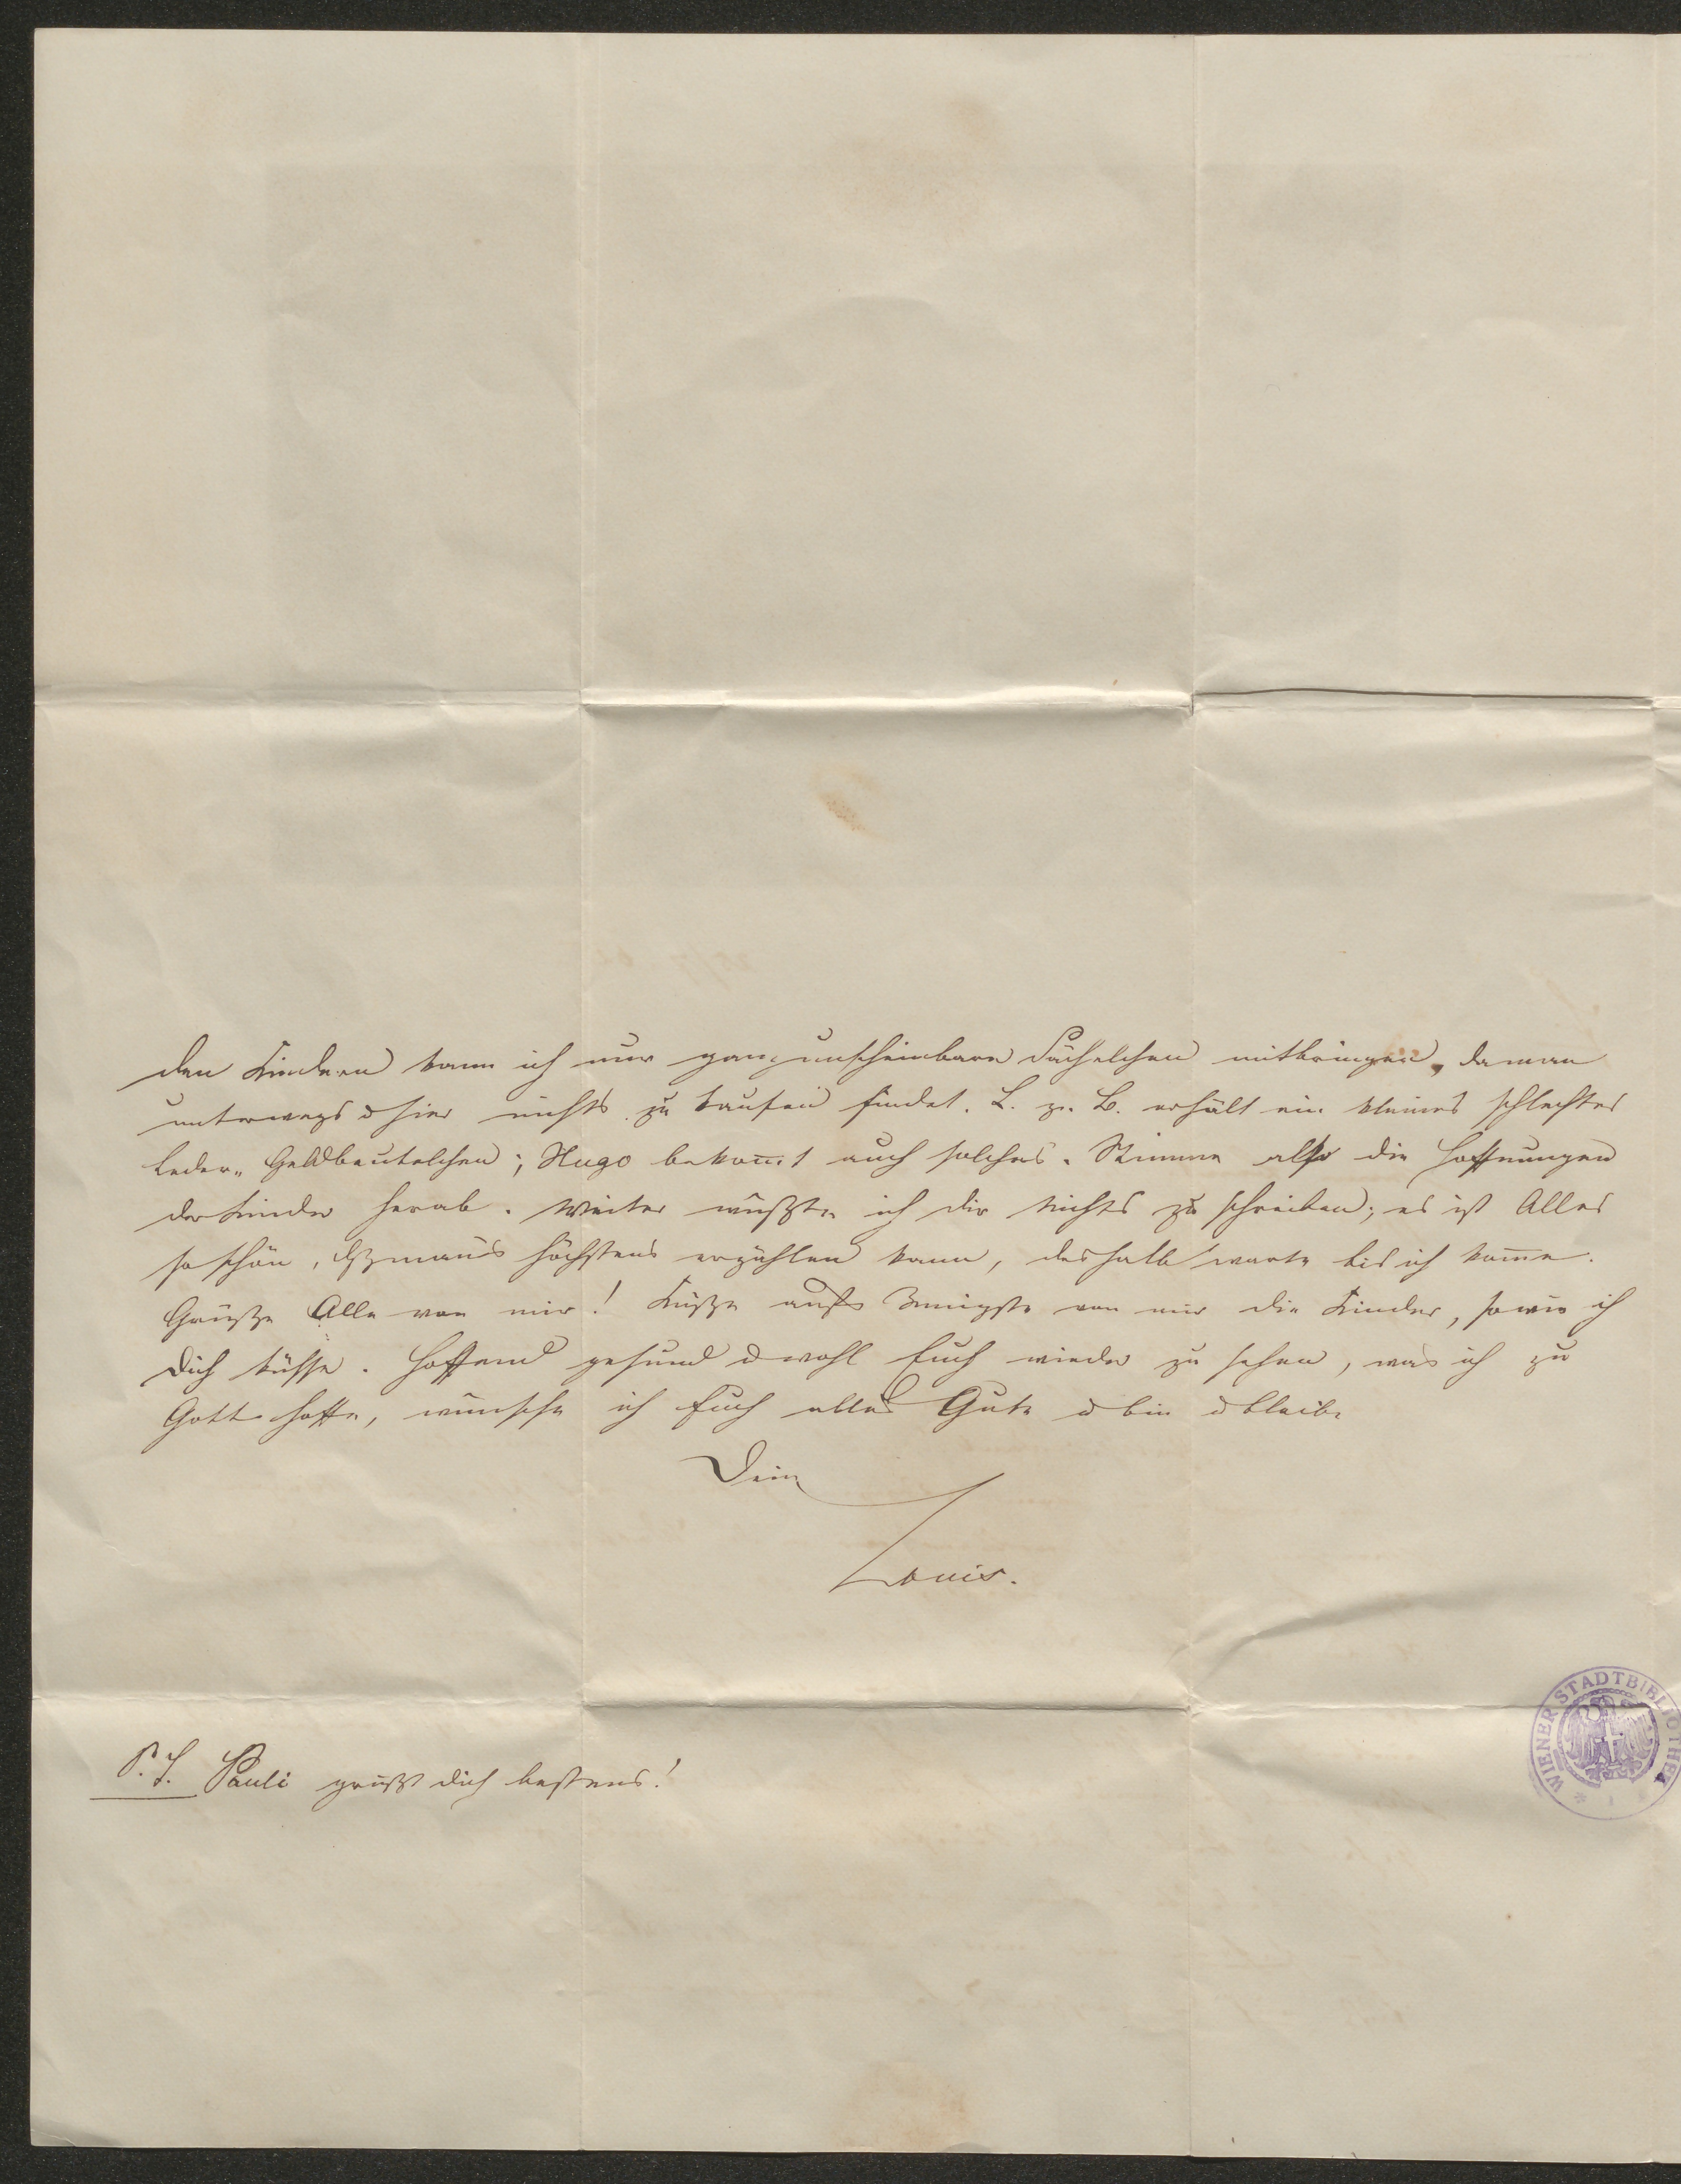 den Kindern kann ich nur ganz unscheinbare Sächelchen mitbringen, da man
unterwegs & hier nichts zu kaufen findet. L. z. B. erhält ein kleines schlechtes
Leder-Geldbeutelchen; Hugo bekom̅t auch solches. Stimme also die Hoffnungen
der Kinder herab. Weiter wüßte ich dir nichts zu schreiben; es ist Alles
so schön, dß man's höchstens erzählen kann, deshalb warte bis ich kom̅e.
Grüße Alle von mir! Küße aufs Innigste von mir die Kinder, sowie ich
Dich küsse. Hoffend gesund & wohl Euch wieder zu sehen, was ich zu
Gott hoffe, wünsche ich Euch alles Gute & bin & bleibe
Dein
Louis.
P.S. Pauli grüßt dich bestens!
WIENER STADTBIBLIOTHEK